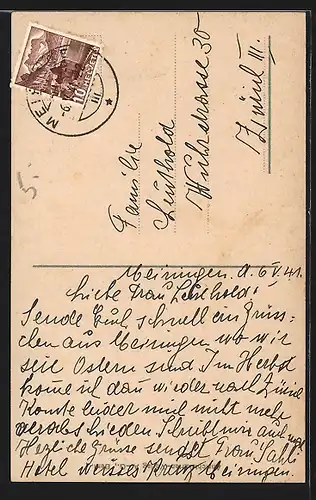 HELVETIA
10
MEI
III
5.
Familie
Leuthold
Wuhrstrasse 30
Zürich III.
Meiringen. d. 6 V. 41.
Liebe Frau Leuthold!
Sende Euch schnell ein Grüss-
chen aus Meiringen wo wir
seit Ostern sind Im Herbst
kome ich dan wieder nach Zürich
Konte leider mich nicht mehr
verabschieden. Schreibt mir auch
Herzliche Grüsse sendet Frau
Hotel weisses Kreuz Meiringen.